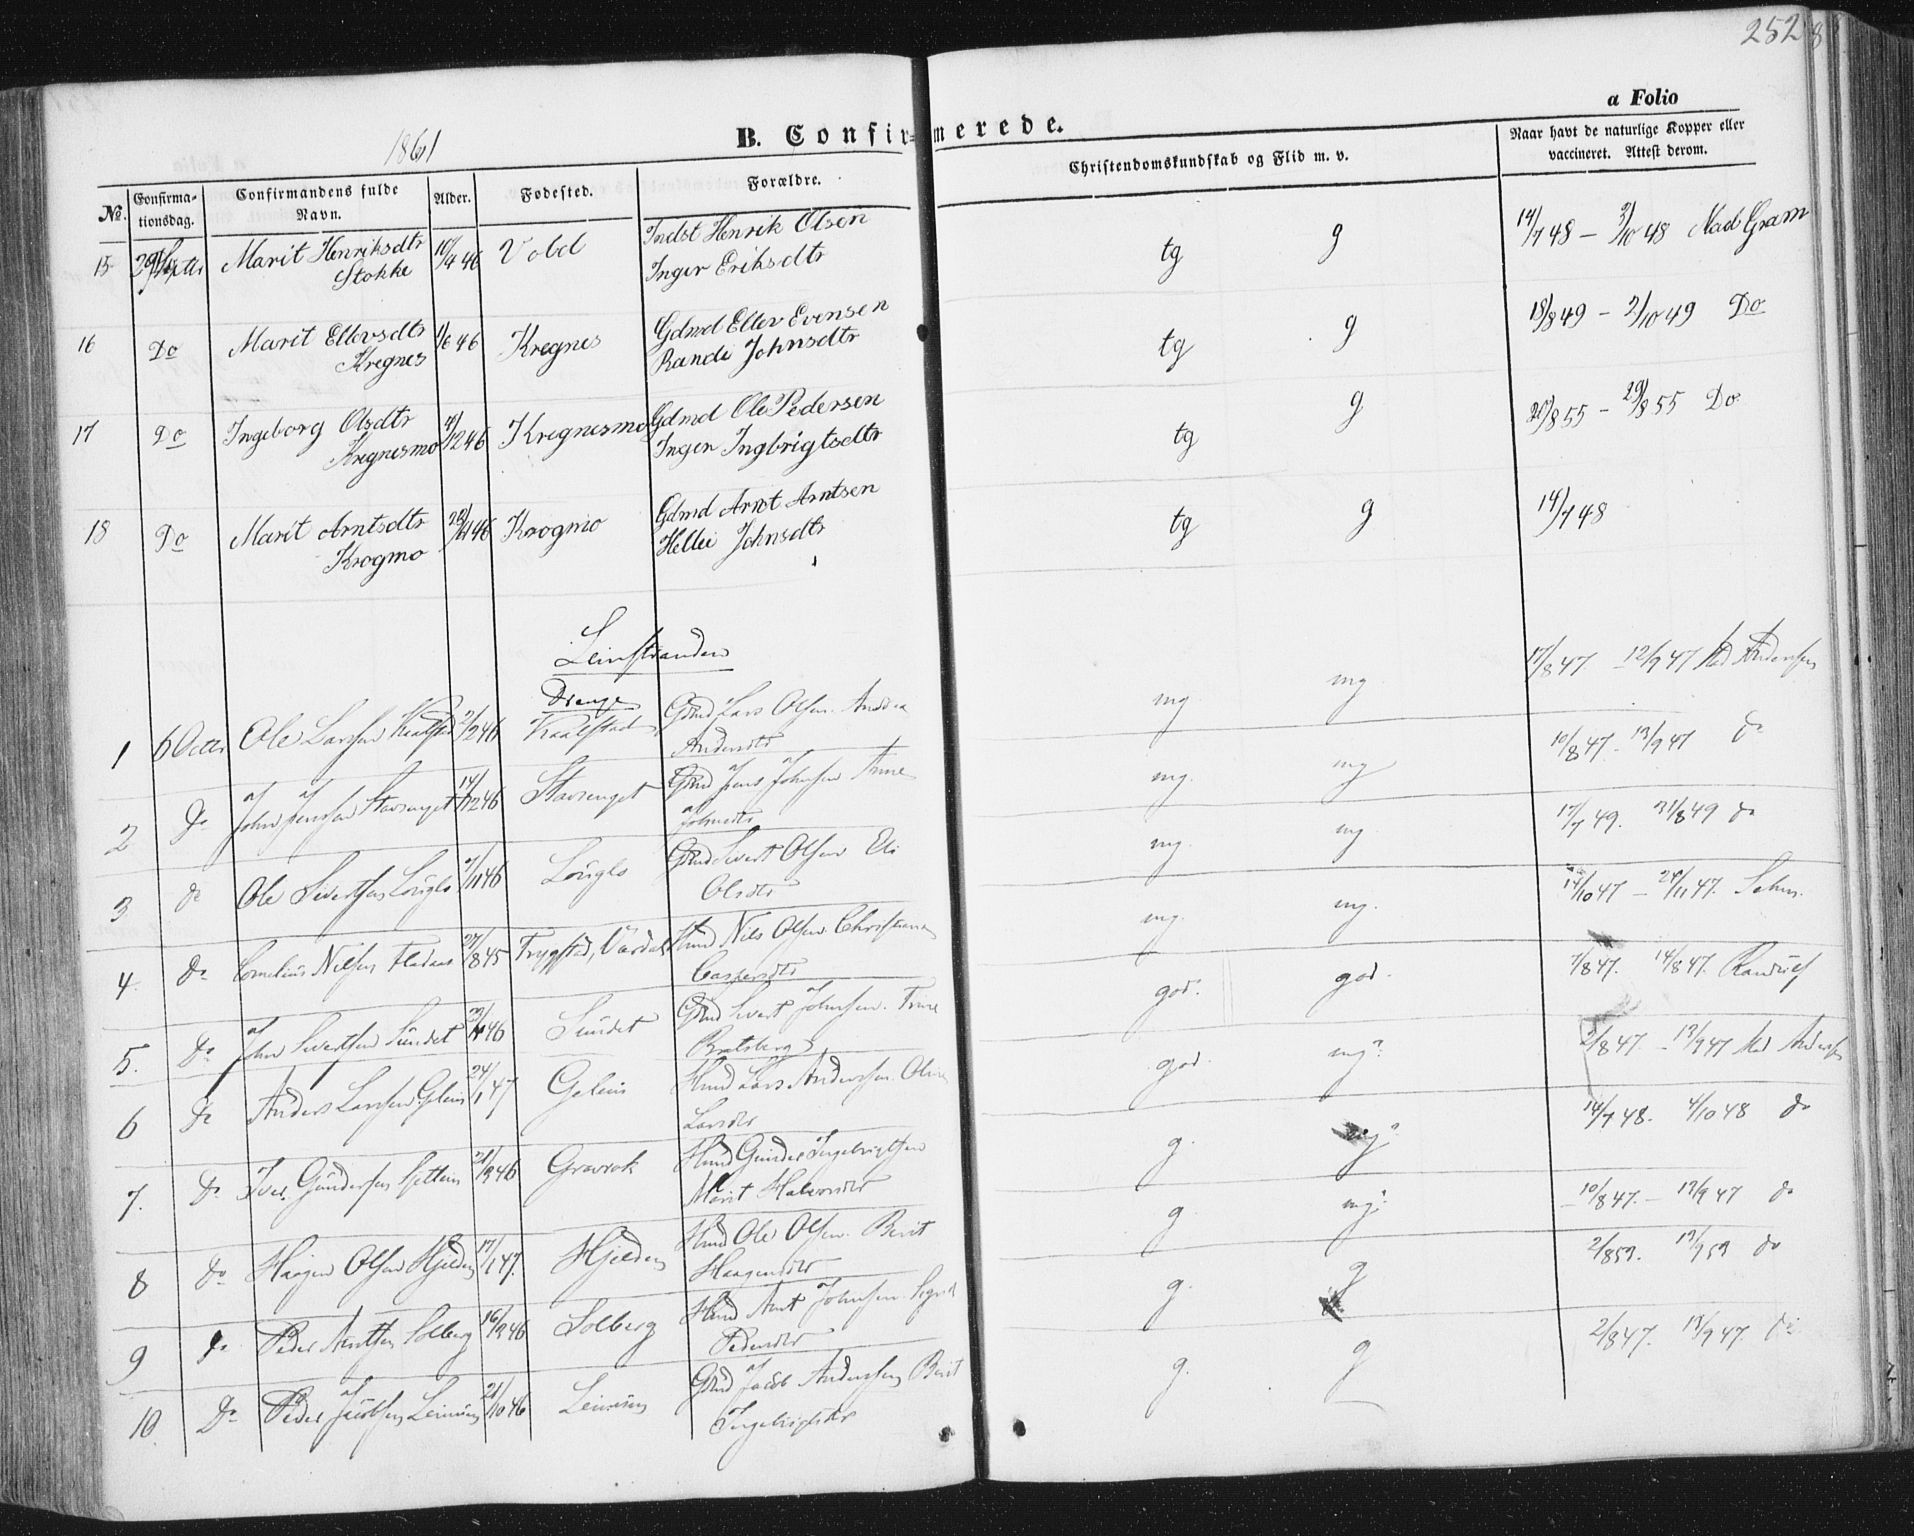 252
a Folio
1861
B. Confirmerede.
No.
Confirma-
tionsdag.
Confirmandens fulde
Navn.
Alder.
Fødested.
Forældre.
Christendomskundskab og Flid m. v.
Naar havt de naturlige Kopper eller
vaccineret. Attest derom.
15 29 Septbr Marit Henriksdtr 10/4 46 Vold Indst Henrik Olsen tg g 14/7 48 - 3/10 48 Mad Gram
Stokke Inger Eriksdtr
16 Do Marit Ellevsdtr 1/6 46 Kregnes Gdmd Ellev Evensen tg g 18/8 49 - 2/10 49 Do
Kregnes Randi Johnsdtr
17 Do Ingeborg Olsdtr /12 46 Kregnesmo Gdmd Ole Pedersen tg g 20/8 55 - 29/8 55 Do
Kregnesmo Inger Ingbrigtsdtr
18 Do Marit Arntsdtr 46 Krogmo Gdmd Arnt Arntsen tg g 14/7 48
Krogmo Johnsdtr
Leinstranden
Drenge
1 6 Octbr Ole Larssen 2/2 46 Gmd Lars Olsen. mg mg 17/8 47 - 12/9 47 Mad Andersen
Andersdtr
2 Do John Jenssen Stavsenget 14/12 46 Stavsenget Gmd Jens Johnsen Anne mg. mg 10/8 47 - 13/9 47 do
Johnsdtr
3 do Ole Sivertsen 7/11 46 Gmd Sivert Olsen Eli mg. mg 17/7 49. 31/8 49 do
Olsdtr
4. Do Cornelius Nilsen 27/8 45 Frygstad, Hmd Nils Olsen Christiana mg. mg. 14/10 47 - 24/11 47.
Caspersdtr
5. Do John Sivertsen Sundet 46 Sundet Gmd Sivert Johnsen. Trine god. god. 7/8 47. 14/8 47.
Bratsberg
6 do Anders Larssen 24/1 47 Hmd Lars Andersen. god mg? 2/8 47. - 13/9 47 Mad Andersen
Larsdtr
7. Do Iver Gundersen 21/9 46 Gravrok Hmd Gunder Ingebrigtsen g. mg? 14/7 48. 4/10 48 do
Marit Halvorsdtr
8 do Haagen Olsen Hjelden 17/1 47. Hjelden Hmd Ole Olsen. Berit g. mg? 10/8 47. - 13/9 47 do
Haagensdtr
9 do Peder Arntsen Solberg 16/9 46 Solberg Hmd Arnt Johnsen g. g 2/8 53. 13/9 53 do
Pedersdtr
10. Do Peder Jacobsen 21/10 46 Gmd Jacob Andersen Berit g. g 2/8 47. 13/9 47. do
Ingebrigtsdtr